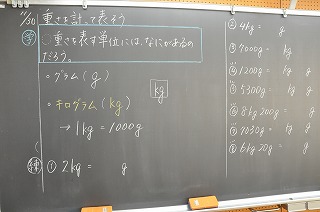 11/30 重さを計って表そう
学 ○重さを表す単位には、なにがあるの
だろう。
○グラム(g)
○キログラム(kg)
kg
→ 1kg = 1000g
練 ① 2kg = g
② 4kg = g
③ 7000g = kg
④ 1200g = kg g
⑤ 5300g = kg g
⑥ 8kg 200g = g
⑦ 7030g = kg g
⑧ 6kg 20g = g